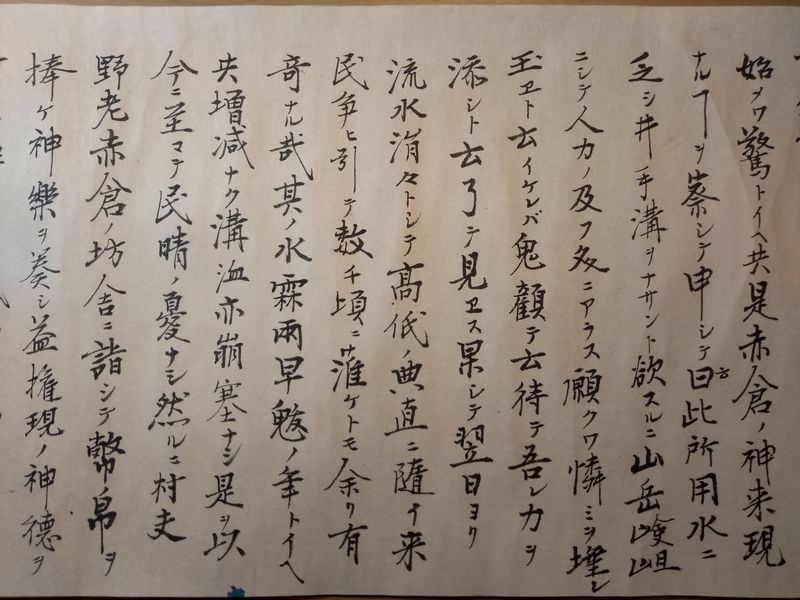 始メワ驚トイヘ共是赤倉ノ神来現
ナルヿヲ察シテ申シテ曰此所用水ニ
言
乏シ井手溝ヲナサント欲スルニ山岳嶮岨
ニシテ人力ノ及フ処ニアラス願クワ憐ミヲ埀レ
玉ヱト云イケレバ鬼顧テ云待テ吾レ力ヲ
添シト云了テ見ヱス果シテ翌日ヨリ
流水涓々トシテ高低ノ曲直ニ随イ来
民争ヒ引テ数千頃ニ潅ケトモ余リ有
奇ナル哉其ノ水霖雨旱魃ノ年トイヘ
共増減ナク溝洫亦崩塞ナシ是ヲ以
今ニ至マテ民晴ノ憂ナシ然ルニ村夫
野老赤倉ノ坊舎ニ詣シテ幣帛ヲ
捧ケ神樂ヲ奏シ益権現ノ神徳ヲ